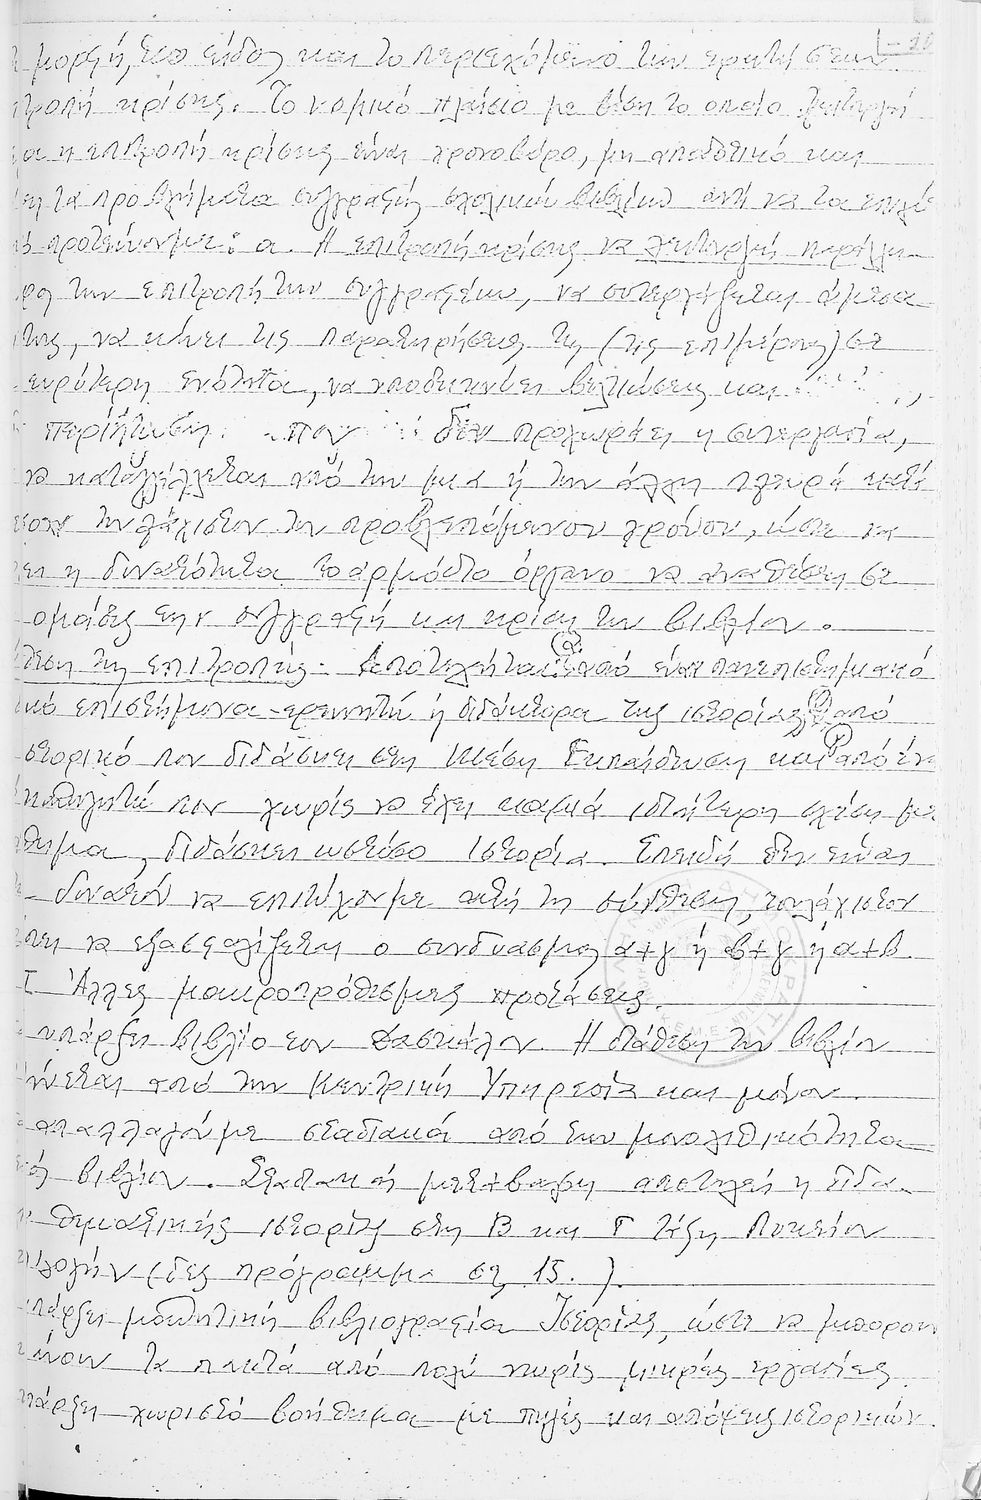 μορφή, το είδος και το περιεχόμενο των ερωτήσεων
τροπή κρίσης. Το νομικό πλαίσιο με βάση το οποίο λειτουργεί
η επιτροπή κρίσης είναι χρονοβόρο, μη αποδοτικό και
τα προβλήματα συγγραφής σχολικών βιβλίων αντί να τα επιλύ
προτείνουμε: α. Η επιτροπή κρίσης να λειτουργεί παράλλη-
την επιτροπή των συγγραφέων, να συνεργάζεται άμεσα
της, να κάνει τις παρατηρήσεις της (τις επιμέρους) σε
ευρύτερη ενότητα, να υποδεικνύει βελτιώσεις και
περίπτωση που δεν προχωράει η συνεργασία,
να καταγγέλλεται από την μια ή την άλλη πλευρά
του προβλεπόμενου χρόνου, ώστε να
ει η δυνατότητα το αρμόδιο όργανο να αναθέσει σε
ομάδες την συγγραφή και κρίση του βιβλίου.
θεση της επιτροπής. Αποτελείται α. από ένα πανεπιστημιακό
κό επιστήμονα-ερευνητή ή διδάκτορα της ιστορίας β από
στορικό που διδάσκει στη Μέση Εκπαίδευση και γ από ένα
καθηγητή που χωρίς να έχει καμμιά ιδιαίτερη σχέση με
θημα, διδάσκει ωστόσο Ιστορία. Επειδή δεν είναι
δυνατόν να επιτύχουμε αυτή τη σύνθεση, τουλάχιστον
πει να εξασφαλίζεται ο συνδυασμός α+γ ή β+γ ή α+β.
Άλλες μακροπρόθεσμες προτάσεις.
υπάρξει βιβλίο του Δασκάλου. Η διάθεση του βιβλίου
γίνεται από την Κεντρική Υπηρεσία και μόνον.
απαλλαγούμε σταδιακά από την μονολιθικότητα
βιβλίου. Σταδιακή μετάβαση αποτελεί η διδα-
θεματικής ιστορίας στη Β και Γ τάξη Λυκείου
επιλογήν (δες πρόγραμμα σελ 15.)
υπάρξει μαθητική βιβλιογραφία Ιστορίας, ώστε να μπορουν
κάνουν τα παιδιά από πολύ νωρίς μικρές εργασίες.
υπάρξει χωριστό βοήθημα με πηγές και απόψεις ιστορικών.